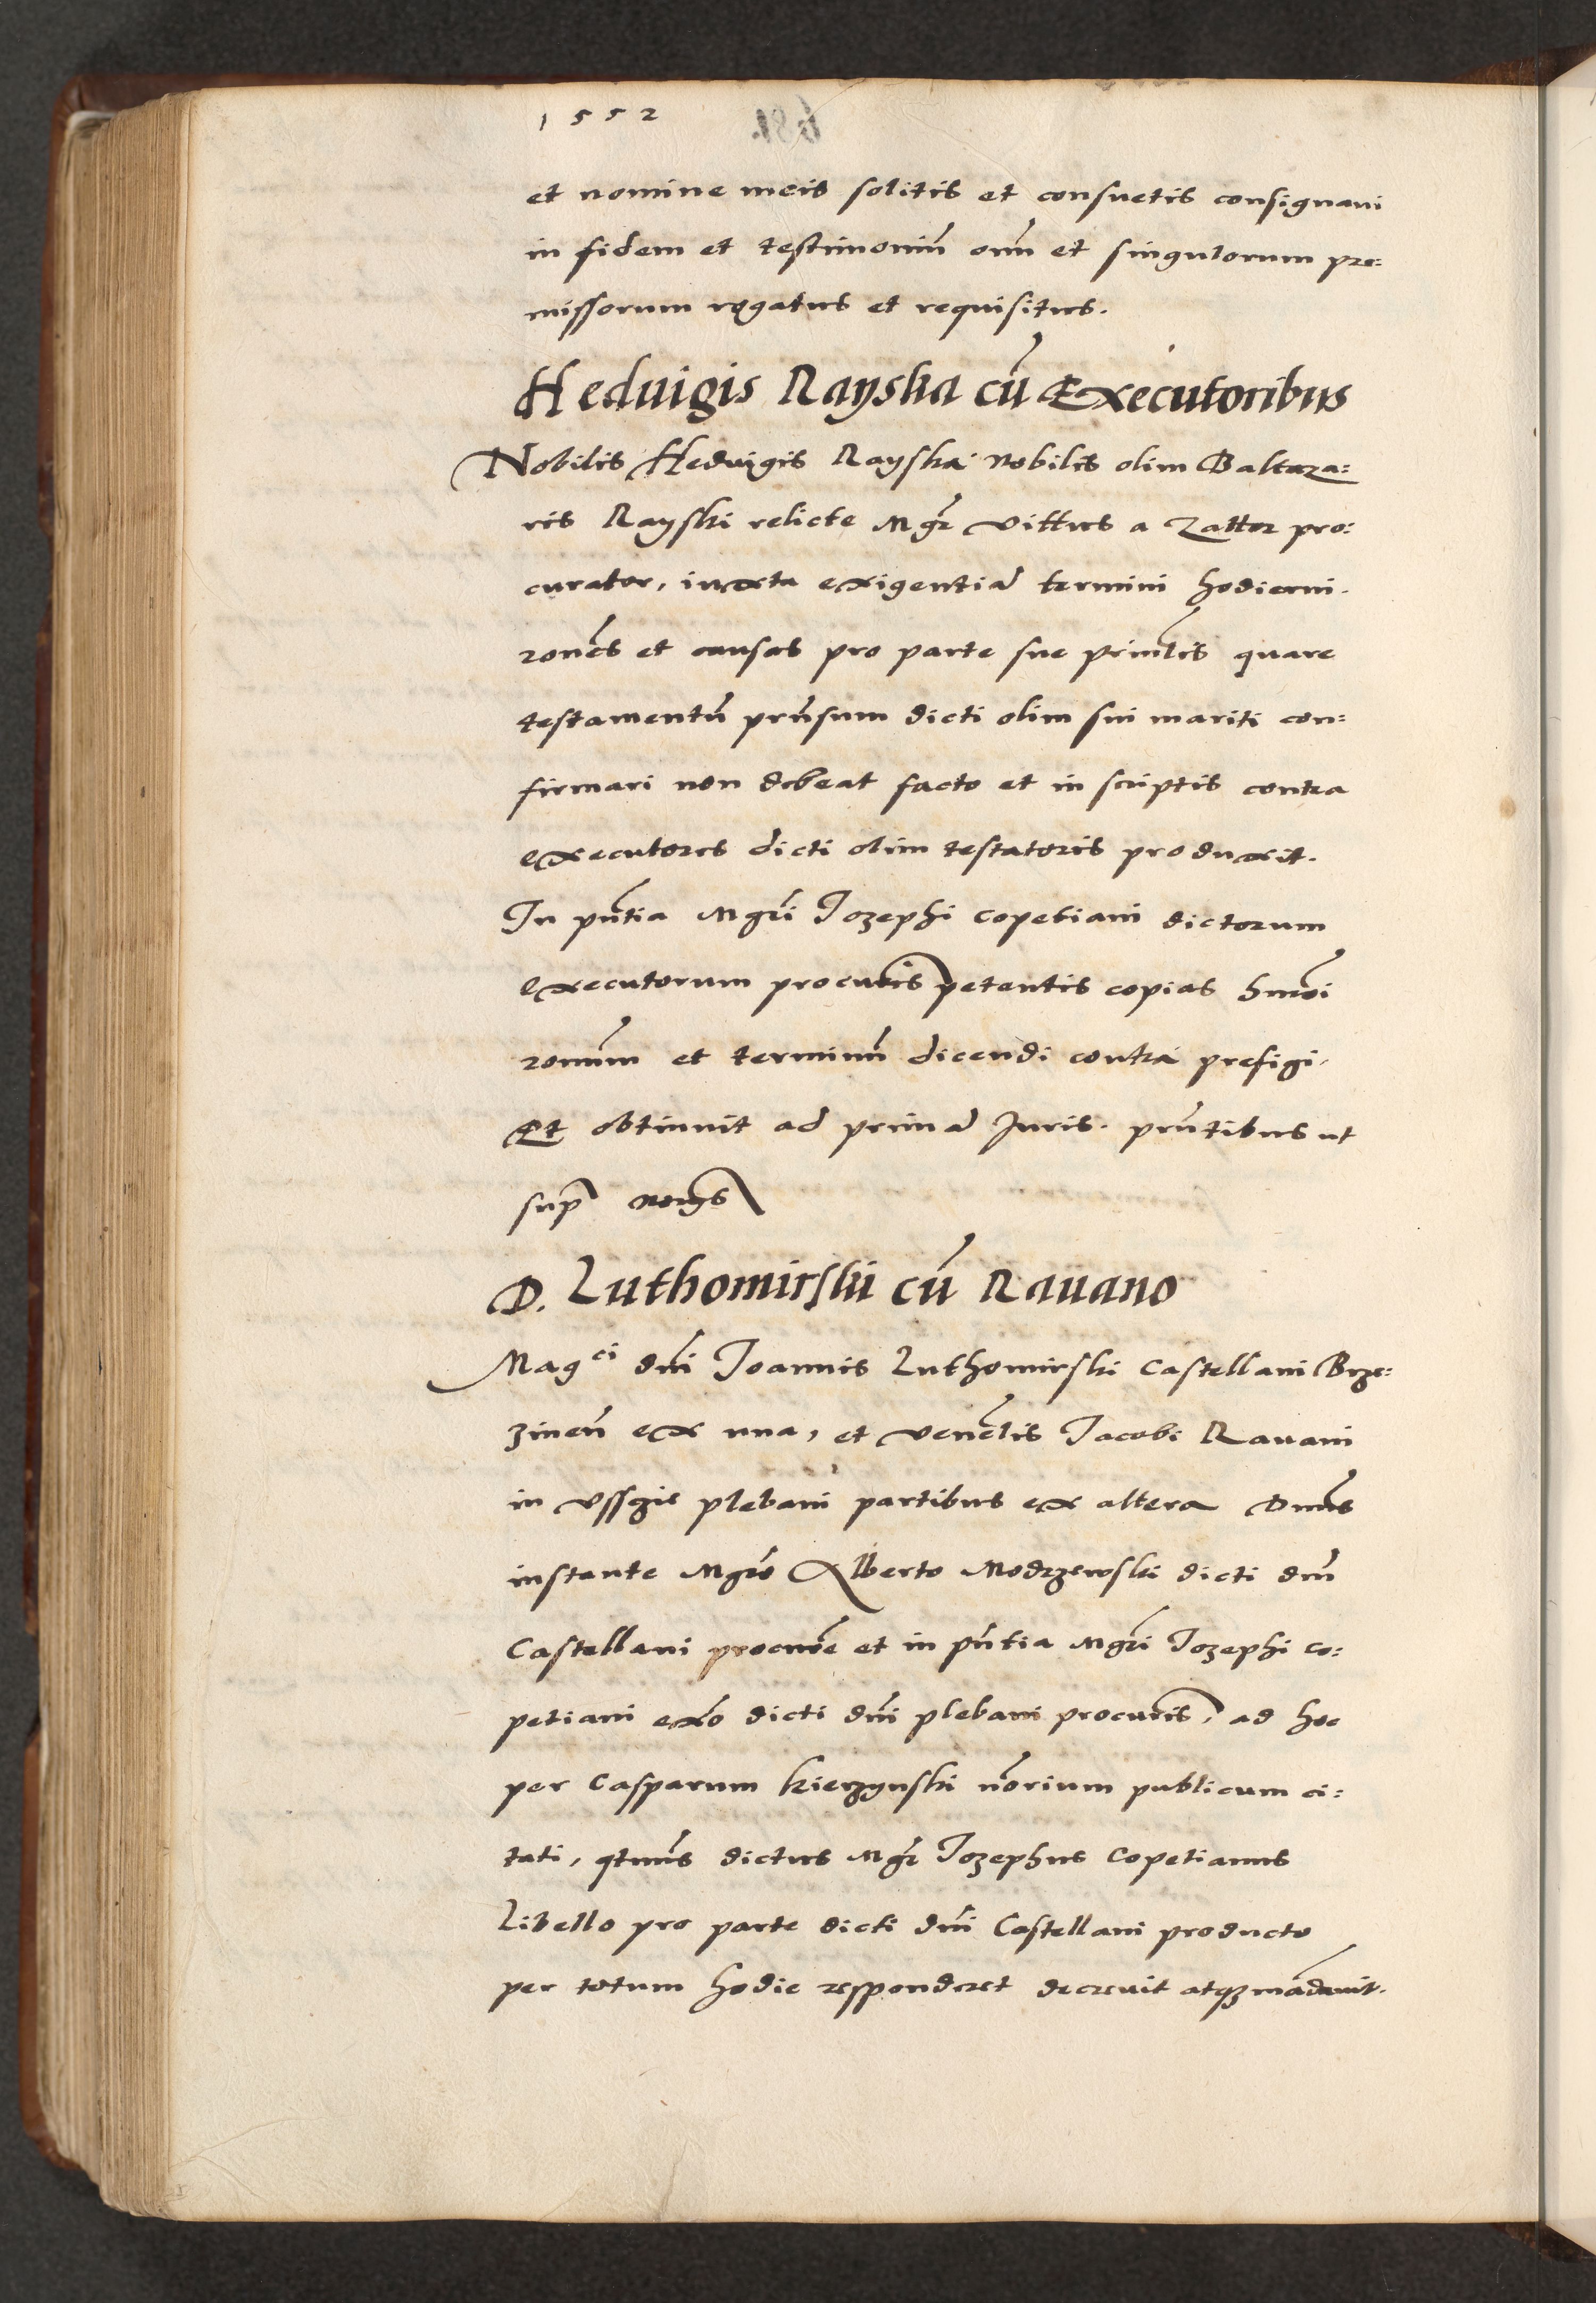 1552
et nomine meis solitis et consuetis consignaui
in fidem et testimoniũ oim̃ et singulorum pre:
missorum rogatus et requisitus.
Heduigis Rayska cũ Executoribus
Nobilis Heduigis Rayska nobilis olim Baltaza:
ris Rayski relicte Mgr̃ Vittus a Zattor pro:
curator, iuxta exigentiã termini hodierni.
rones̃ et causas pro parte sue prinlis̃ quare
testamentũ prñsum dicti olim sui mariti con:
firmari non debeat facto et in scriptis contra
executores dicti olim testatoris produxit.
In pñtia Mgrĩ Jozephi Copetiani dictorum
executorum procuris̃ petentis copias hmõi
ronum̃ et terminũ dicendi contra prefigi.
Et obtinuit ad primã Juris. prñtibus ut
sup̃
D. Luthomirskii cũ Rauano
Magci dñi Joannis Luthomirski Castellani Brze:
zineñ ex una, et venelis̃ Jacobi Rauani
in Vssgie plebani partibus ex altera Dnus̃
instante Mgrõ Alberto Modrzewski dicti dñi
Castellani procurẽ et in pñtia Mgrĩ Jozephi Co:
petiani exõ dicti dñi plebani procuris̃, ad hoc
per Casparum Kierzynski notriũm publicum ci:
tati, qtnus̃ dictus Mgr̃ Jozephus Copetianus
Libello pro parte dicti dñi Castellani producto
per totum hodie responderet decreuit atqz mãdauit.